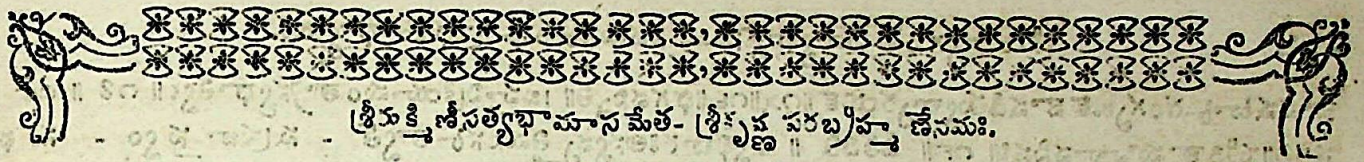 శ్రీరుక్మిణీసత్యభామాసమేత- శ్రీకృష్ణ పరబ్రహ్మ ణేనమః.